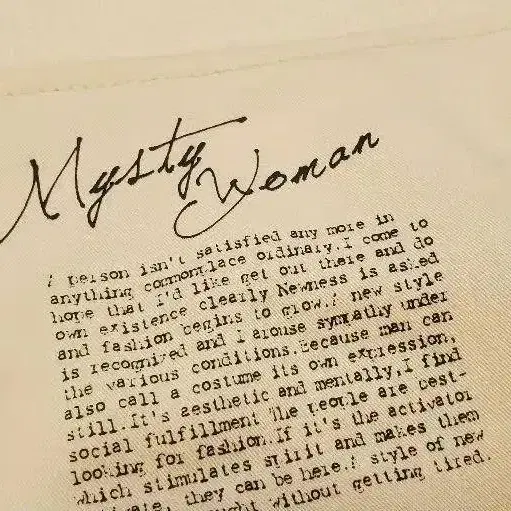 Mysty Woman
A person isn't satisfied any more in
anything commonplace ordinary.I come to
hope that I'd like get out there and do
own existence clearly Newness is asked
and fashion begins to grow.A new style
is recognized and I arouse sympathy under
the various conditions.Because man can
also call a costume its own expression,
still.It's aesthetic and mentally,I find
social fulfillment The people are best-
looking for fashion.If it's the activator
which stimulates spirit and makes them
they can be here.A style of new
without getting tired.